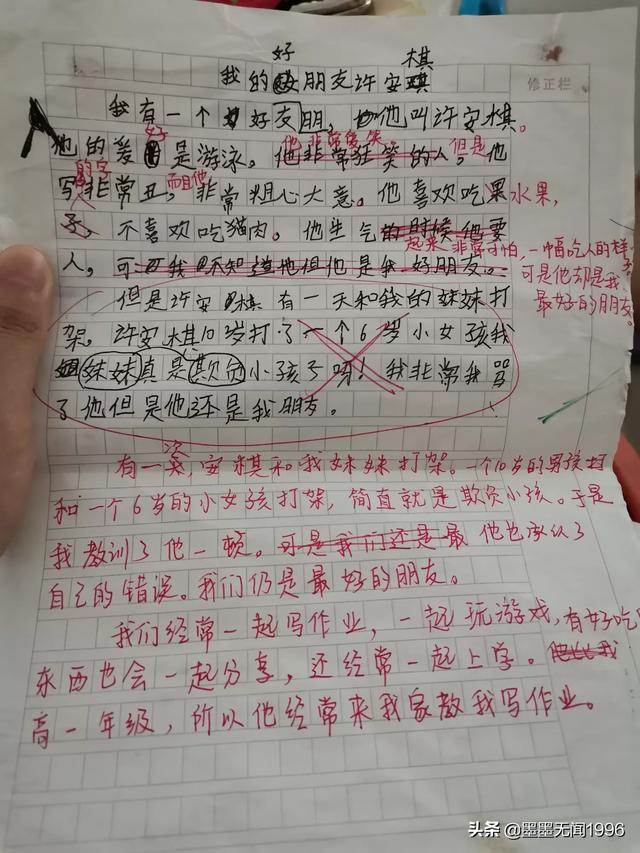 我的好朋友许安棋
修正栏
我有一个好友朋,他叫许安棋。
他的爱好是游泳。他非常狂笑的人,他
他非常爱笑 但是
写非常丑,非常粗心大意。他喜欢吃果水果,
的字 而且他
子,不喜欢吃猫肉。他生气的时候他要
起来非常可怕,一幅吃人的样子
人,可我不知道他但他是我好朋友。
可是他却是我
最好的朋友。
但是许安棋有一天和我的妹妹打
架。许安棋10岁打了一个6岁小女孩我
妹妹真是欺负小孩子吗!我非常我骂
了他但是他还是我朋友。
有一次,安棋和我妹妹打架。一个10岁的男孩打
和一个6岁的小女孩打架,简直就是欺负小孩。于是
我教训了他一顿。可是我们还是最 他也承认了
自己的错误。我们仍是最好的朋友。
我们经常一起写作业,一起玩游戏,有好吃
东西也会一起分享,还经常一起上学。他比我
高一年级,所以他经常来我家教我写作业。
头条 @墨墨无闻1996